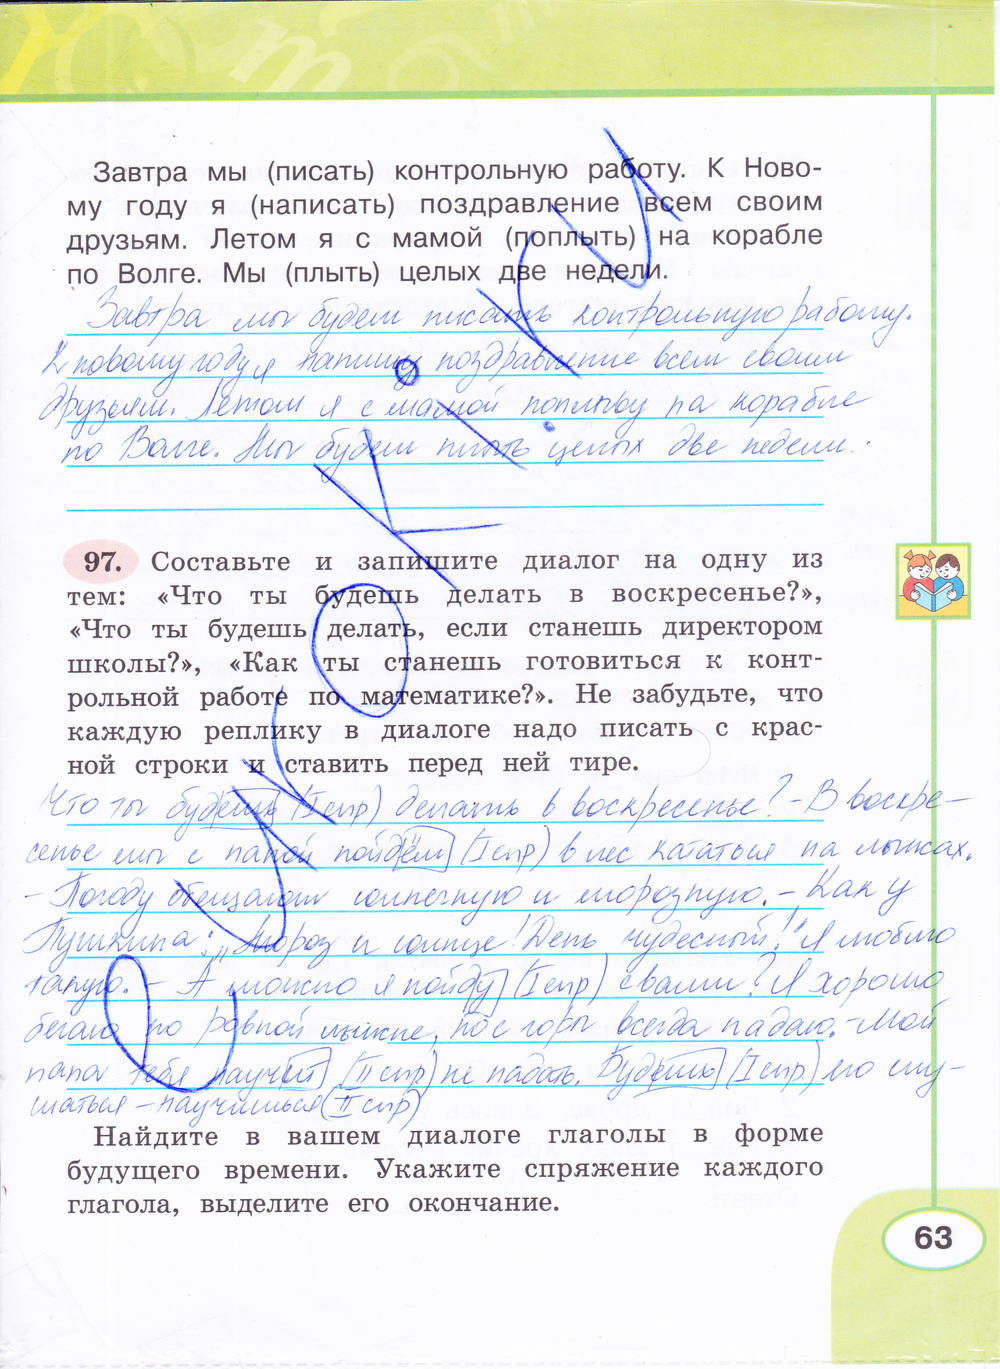 Завтра мы (писать) контрольную работу. К Ново-
му году я (написать) поздравление всем своим
друзьям. Летом я с мамой (поплыть) на корабле
по Волге. Мы (плыть) целых две недели.
Завтра мы будем писать контрольную работу.
К новому году я напишу поздравление всем своим
друзьям. Летом я с мамой поплыву на корабле
по Волге. Мы будем плыть целых две недели.
97. Составьте и запишите диалог на одну из
тем: «Что ты будешь делать в воскресенье?»,
«Что ты будешь делать, если станешь директором
школы?», «Как ты станешь готовиться к конт-
рольной работе по математике?». Не забудьте, что
каждую реплику в диалоге надо писать с крас-
ной строки и ставить перед ней тире.
Что ты будешь (I спр) делать в воскресенье? - В воскре-
сенье мы с папой пойдём (I спр) в лес кататься на лыжах.
- Погоду обещают солнечную и морозную. - Как у
Пушкина: „Мороз и солнце! День чудесный!" Я люблю
такую. - А можно я пойду (I спр) с вами? Я хорошо
бегаю по ровной лыжне, но с горы всегда падаю. - Мой
папа тебя научит (II спр) не падать. Будешь (I спр) его слу-
шаться - научишься (II спр)
Найдите в вашем диалоге глаголы в форме
будущего времени. Укажите спряжение каждого
глагола, выделите его окончание.
63